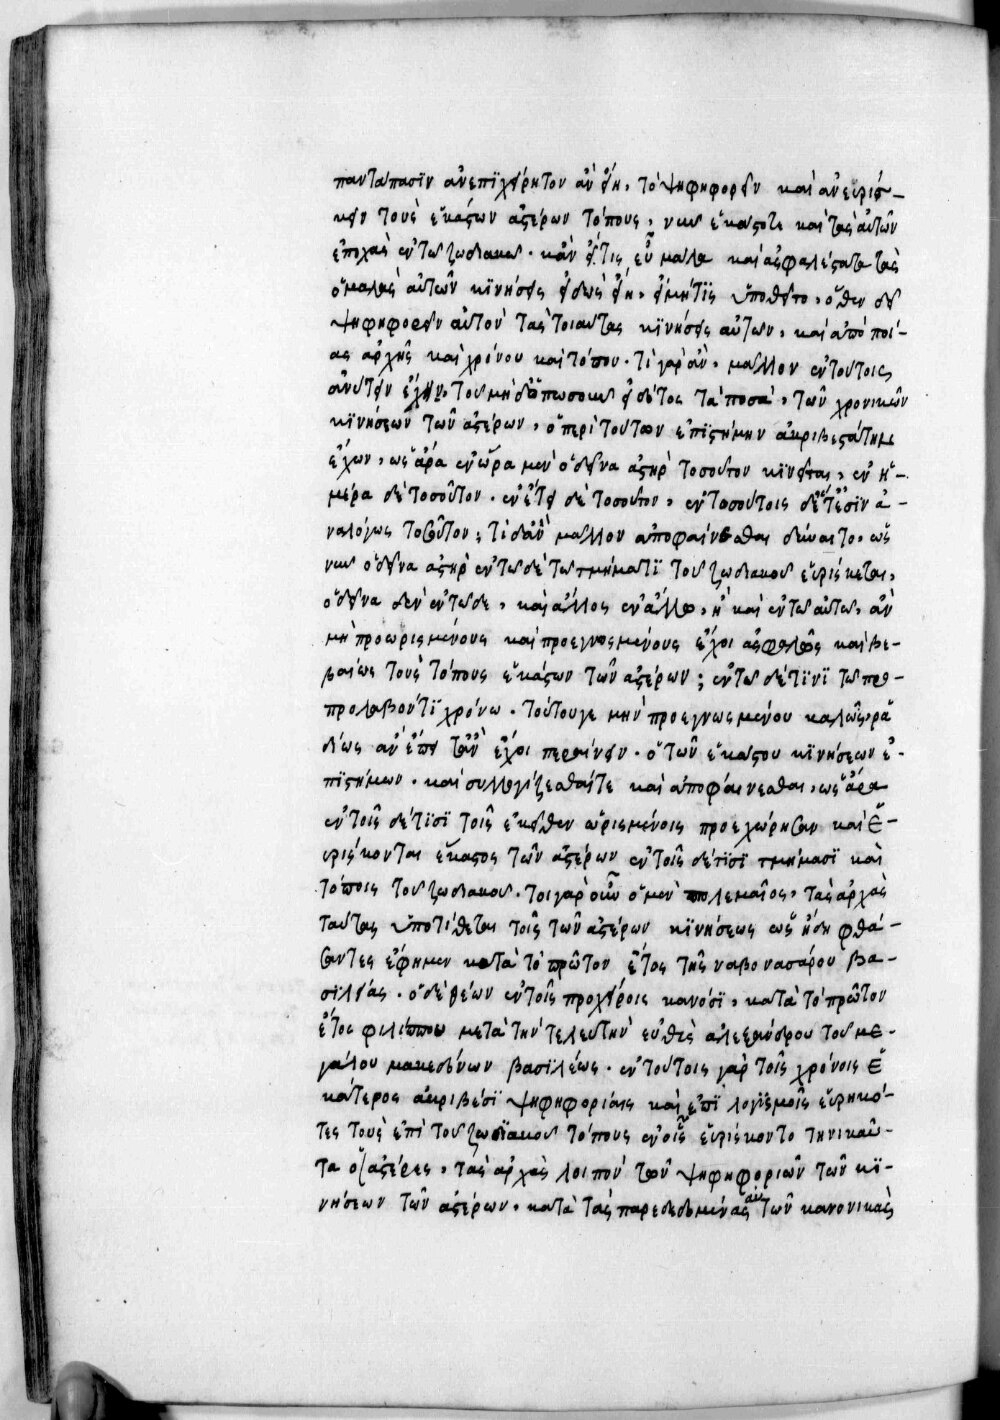 πανταπασϊν ἀνεπϊχείρητον ἂν εἴη, τὸ ψηφηφορεῖν καὶ ἀνευρίσ-
κειν τοὺς ἑκάστων ἀστέρων τόπους, νῦν ἑκάστοτε καὶ τὰς αὐτῶν
ἐποχὰς ἐν τῶ ζωδιακῶ. κἂν εἴ τις εὖ μάλα καὶ ἀσφαλέστατα τὰς
ὁμαλὰς αὐτῶν κϊνήσεις εἰδὼς εἴη, εἰ μήτϊς ὑποθεῖτο, ὅθεν δεῖ
ψηφηφορεῖν αὐτὸν τὰς τοιαύτας κϊνήσεις αὐτῶν, καὶ ἀπὸ ποί-
ας ἀρχῆς καὶ χρόνου καὶ τόπου. τί γὰρ ἂν, μᾶλλον ἐν τούτοις
ἀνύτειν ἔχειν, τοῦ μηδόπωσοῦν εἰδότος τὰ ποσὰ, τῶν χρονικῶν
κϊνήσεων τῶν ἀστέρων, ὁ περὶ τούτων ἐπϊστήμην ἀκριβεστάτην
ἔχων, ὡς ἄρα ἐν ὥρα μὲν ὁ δεῖνα ἀστὴρ τοσοῦτον κϊνεῖται, ἐν ἡ-
μέρα δὲ τοσοῦτον. ἐν ἔτει δὲ τοσοῦτον, ἐν τοσούτοις δὲ ἔτεσϊν ἀ-
ναλόγως τοσοῦτον; τί δ' ἂν μᾶλλον ἀποφαίνεσθαι δύναιτο, ὡς
νῦν ὁ δεῖνα ἀστὴρ ἐν τῶδε τῶ τμήματϊ τοῦ ζωδιακοῦ εὑρίσκεται,
ὁ δεῖνα δ' ἐν τῶδε, καὶ ἄλλος ἐν ἄλλω, ἢ καὶ ἐν τῶ αὐτῶ, ἂν
μὴ προωρισμένους καὶ προεγνωσμένους ἔχοι ἀσφαλῶς καὶ βε-
βαίως τοὺς τόπους ἑκάστων τῶν ἀστέρων; ἐν τῶ δέ τϊνϊ τῶ προ-
προλαβόντϊ χρόνω. τούτου γε μὴν προεγνωσμένου καλῶς, ῥα
δίως ἂν ἔπειτ' ἂν ἔχοι περαίνειν. ὁ τῶν ἑκάστου κϊνήσεων ἐ-
πϊστήμων. καὶ συλλογίζεσθαί τε καὶ ἀποφαίνεσθαι, ὡς ἄρα
ἐν τοῖς δέ τϊσϊ τοῖς ἐκεῖθεν ὡρισμένοις προεχώρησαν καὶ εὑ-
ρίσκονται ἕκαστος τῶν ἀστέρων ἐν τοῖς δέ τϊσϊ τμήμασϊ καὶ
τόποις τοῦ ζωδιακοῦ. τοιγαροῦν ὁ μὲν πτολεμαῖος, τὰς ἀρχὰς
ταύτας ὑποτίθεται τοῖς τῶν ἀστέρων κϊνήσεως ὡς ἤδη φθά-
σαντες ἔφημεν κατὰ τὸ πρῶτον ἔτος τῆς ναβονασάρου βα-
σϊλείας. ὁ δὲ θέων ἐν τοῖς προχείροις κανόσϊ, κατὰ τὸ πρῶτον
ἔτος φιλίππου μετὰ τὴν τελευτὴν εὐθὺς ἀλεξάνδρου τοῦ με-
γάλου μακεδόνων βασϊλέως. ἐν τούτοις γὰρ τοῖς χρόνοις ἑ
κάτερος ἀκριβέσϊ ψηφηφορίαις καὶ ἐπϊλογϊσμοῖς εὑρηκό-
τες τοὺς ἐπὶ τοῦ ζωδϊακοῦ τόπους ἐν οἷς εὑρίσκοντο τηνικαῦ-
τα οἱ ἀστέρες, τὰς ἀρχὰς λοιπὸν τῶν ψηφηφοριῶν τῶν κϊ-
νήσεων τῶν ἀστέρων, κατὰ τὰς παρεδεδομένας αὐτῶν κανονικὰς